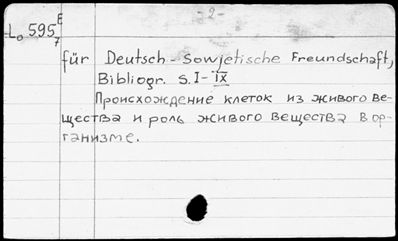 -2-
Lo 595 8/7
für Deutsch-Sowjetische Freundschaft,
Bibliogr. S.I-IX
Происхождение клеток из живого ве-
щества и роль живого вещества в ор-
ганизме.